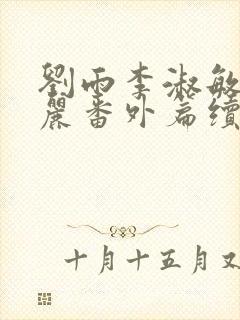 劉雨李淑敏
麗番外篇續
十月十五月又